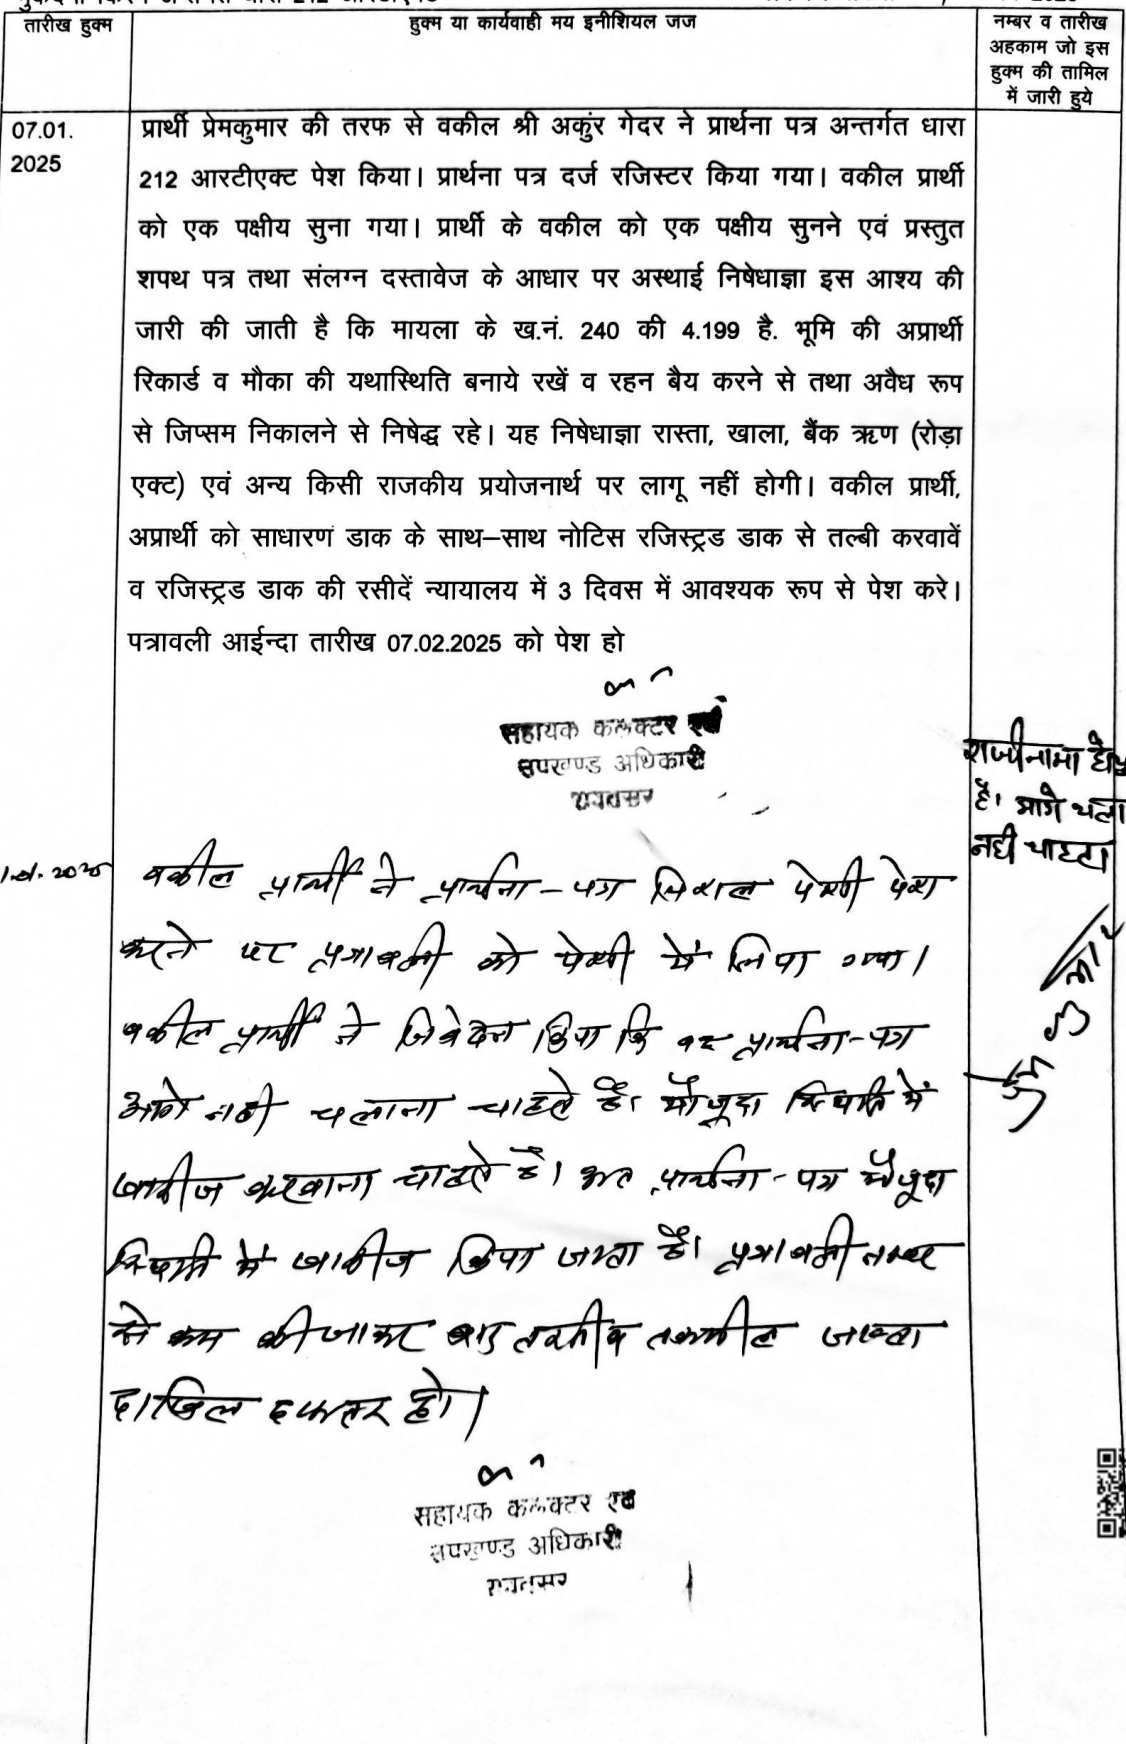 तारीख हुक्म
हुक्म या कार्यवाही मय इनीशियल जज
नम्बर व तारीख
अहकाम जो इस
हुक्म की तामिल
में जारी हुये
07.01.
2025
प्रार्थी प्रेमकुमार की तरफ से वकील श्री अकुंर गेदर ने प्रार्थना पत्र अन्तर्गत धारा
212 आरटीएक्ट पेश किया। प्रार्थना पत्र दर्ज रजिस्टर किया गया। वकील प्रार्थी
को एक पक्षीय सुना गया। प्रार्थी के वकील को एक पक्षीय सुनने एवं प्रस्तुत
शपथ पत्र तथा संलग्न दस्तावेज के आधार पर अस्थाई निषेधाज्ञा इस आश्य की
जारी की जाती है कि मायला के ख.नं. 240 की 4.199 है. भूमि की अप्रार्थी
रिकार्ड व मौका की यथास्थिति बनाये रखें व रहन बैय करने से तथा अवैध रूप
से जिप्सम निकालने से निषेद्ध रहे। यह निषेधाज्ञा रास्ता, खाला, बैंक ऋण (रोड़ा
एक्ट) एवं अन्य किसी राजकीय प्रयोजनार्थ पर लागू नहीं होगी। वकील प्रार्थी,
अप्रार्थी को साधारण डाक के साथ–साथ नोटिस रजिस्ट्रड डाक से तल्बी करवावें
व रजिस्ट्रड डाक की रसीदें न्यायालय में 3 दिवस में आवश्यक रूप से पेश करे।
पत्रावली आईन्दा तारीख 07.02.2025 को पेश हो
सहायक कलक्टर एवं
उपखण्ड अधिकारी
रावतसर
राजीनामा
है। आगे चला
नही चाहता
वकील प्रार्थी ने प्रार्थना-पत्र पेशी पेश
करने पर पत्रावली को पेशी में लिया गया।
वकील प्रार्थी ने निवेदन किया कि वह प्रार्थना-पत्र
आगे नही चलाना चाहते है। मौजूदा स्थिति में
खारीज करवाना चाहते है। अत प्रार्थना-पत्र मौजूदा
स्थिति में खारीज किया जाता है। पत्रावली नम्बर
से कम की जाकर बाद तरतीब तकमील जाब्ता
दाखिल दफतर हो।
सहायक कलक्टर एवं
उपखण्ड अधिकारी
रावतसर